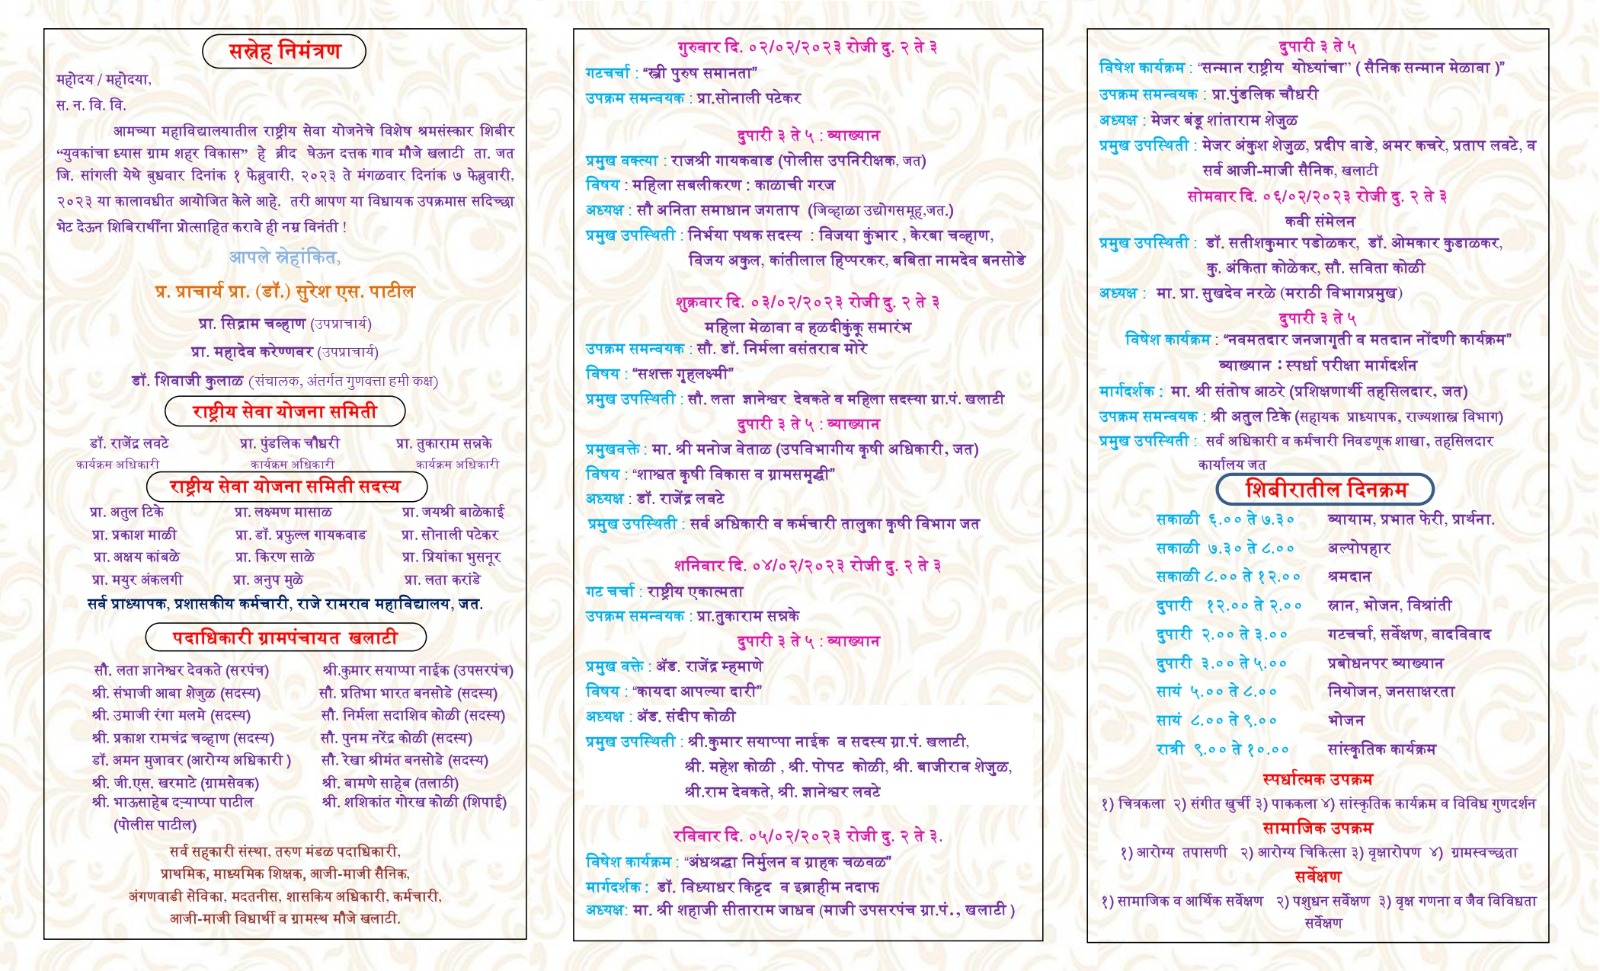 सस्नेह निमंत्रण
महोदय / महोदया,
स. न. वि. वि.
आमच्या महाविद्यालयातील राष्ट्रीय सेवा योजनेचे विशेष श्रमसंस्कार शिबीर
“युवकांचा ध्यास ग्राम शहर विकास” हे ब्रीद घेऊन दत्तक गाव मौजे खलाटी ता. जत
जि. सांगली येथे बुधवार दिनांक १ फेब्रुवारी, २०२३ ते मंगळवार दिनांक ७ फेब्रुवारी,
२०२३ या कालावधीत आयोजित केले आहे. तरी आपण या विधायक उपक्रमास सदिच्छा
भेट देऊन शिबिरार्थींना प्रोत्साहित करावे ही नम्र विनंती !
आपले स्नेहांकित,
प्र. प्राचार्य प्रा. (डॉ.) सुरेश एस. पाटील
प्रा. सिद्राम चव्हाण (उपप्राचार्य)
प्रा. महादेव करेण्णवर (उपप्राचार्य)
डॉ. शिवाजी कुलाळ (संचालक, अंतर्गत गुणवत्ता हमी कक्ष)
राष्ट्रीय सेवा योजना समिती
डॉ. राजेंद्र लवटे प्रा. पुंडलिक चौधरी प्रा. तुकाराम सन्नके
कार्यक्रम अधिकारी कार्यक्रम अधिकारी कार्यक्रम अधिकारी
राष्ट्रीय सेवा योजना समिती सदस्य
प्रा. अतुल टिके प्रा. लक्ष्मण मासाळ प्रा. जयश्री बाळेकाई
प्रा. प्रकाश माळी प्रा. डॉ. प्रफुल्ल गायकवाड प्रा. सोनाली पटेकर
प्रा. अक्षय कांबळे प्रा. किरण साळे प्रा. प्रियांका भुसनूर
प्रा. मयुर अंकलगी प्रा. अनुप मुळे प्रा. लता करांडे
सर्व प्राध्यापक, प्रशासकीय कर्मचारी, राजे रामराव महाविद्यालय, जत.
पदाधिकारी ग्रामपंचायत खलाटी
सौ. लता ज्ञानेश्वर देवकते (सरपंच) श्री.कुमार सयाप्पा नाईक (उपसरपंच)
श्री. संभाजी आबा शेजुळ (सदस्य) सौ. प्रतिभा भारत बनसोडे (सदस्य)
श्री. उमाजी रंगा मलमे (सदस्य) सौ. निर्मला सदाशिव कोळी (सदस्य)
श्री. प्रकाश रामचंद्र चव्हाण (सदस्य) सौ. पुनम नरेंद्र कोळी (सदस्य)
डॉ. अमन मुजावर (आरोग्य अधिकारी ) सौ. रेखा श्रीमंत बनसोडे (सदस्य)
श्री. जी.एस. खरमाटे (ग्रामसेवक) श्री. बामणे साहेब (तलाठी)
श्री. भाऊसाहेब दऱ्याप्पा पाटील श्री. शशिकांत गोरख कोळी (शिपाई)
(पोलीस पाटील)
सर्व सहकारी संस्था, तरुण मंडळ पदाधिकारी,
प्राथमिक, माध्यमिक शिक्षक, आजी-माजी सैनिक,
अंगणवाडी सेविका, मदतनीस, शासकिय अधिकारी, कर्मचारी,
आजी-माजी विधार्थी व ग्रामस्थ मौजे खलाटी.
गुरुवार दि. ०२/०२/२०२३ रोजी दु. २ ते ३
गटचर्चा : “स्त्री पुरुष समानता”
उपक्रम समन्वयक : प्रा.सोनाली पटेकर
दुपारी ३ ते ५ : व्याख्यान
प्रमुख वक्त्या : राजश्री गायकवाड (पोलीस उपनिरीक्षक, जत)
विषय : महिला सबलीकरण : काळाची गरज
अध्यक्ष : सौ अनिता समाधान जगताप (जिव्हाळा उद्योगसमूह,जत.)
प्रमुख उपस्थिती : निर्भया पथक सदस्य : विजया कुंभार , केरबा चव्हाण,
विजय अकुल, कांतीलाल हिप्परकर, बबिता नामदेव बनसोडे
शुक्रवार दि. ०३/०२/२०२३ रोजी दु. २ ते ३
महिला मेळावा व हळदीकुंकू समारंभ
उपक्रम समन्वयक : सौ. डॉ. निर्मला वसंतराव मोरे
विषय : “सशक्त गृहलक्ष्मी”
प्रमुख उपस्थिती : सौ. लता ज्ञानेश्वर देवकते व महिला सदस्या ग्रा.पं. खलाटी
दुपारी ३ ते ५ : व्याख्यान
प्रमुखवक्ते : मा. श्री मनोज वेताळ (उपविभागीय कृषी अधिकारी, जत)
विषय : “शाश्वत कृषी विकास व ग्रामसमृद्धी”
अध्यक्ष : डॉ. राजेंद्र लवटे
प्रमुख उपस्थिती : सर्व अधिकारी व कर्मचारी तालुका कृषी विभाग जत
शनिवार दि. ०४/०२/२०२३ रोजी दु. २ ते ३
गट चर्चा : राष्ट्रीय एकात्मता
उपक्रम समन्वयक : प्रा.तुकाराम सन्नके
दुपारी ३ ते ५ : व्याख्यान
प्रमुख वक्ते : ॲड. राजेंद्र म्हमाणे
विषय : “कायदा आपल्या दारी”
अध्यक्ष : ॲड. संदीप कोळी
प्रमुख उपस्थिती : श्री.कुमार सयाप्पा नाईक व सदस्य ग्रा.पं. खलाटी,
श्री. महेश कोळी , श्री. पोपट कोळी, श्री. बाजीराव शेजुळ,
श्री.राम देवकते, श्री. ज्ञानेश्वर लवटे
रविवार दि. ०५/०२/२०२३ रोजी दु. २ ते ३.
विषेश कार्यक्रम : “अंधश्रद्धा निर्मुलन व ग्राहक चळवळ”
मार्गदर्शक : डॉ. विध्याधर किट्टद व इब्राहीम नदाफ
अध्यक्ष: मा. श्री शहाजी सीताराम जाधव (माजी उपसरपंच ग्रा.पं., खलाटी )
दुपारी ३ ते ५
विषेश कार्यक्रम : “सन्मान राष्ट्रीय योध्यांचा” ( सैनिक सन्मान मेळावा )”
उपक्रम समन्वयक : प्रा.पुंडलिक चौधरी
अध्यक्ष : मेजर बंडू शांताराम शेजुळ
प्रमुख उपस्थिती : मेजर अंकुश शेजुळ, प्रदीप वाडे, अमर कचरे, प्रताप लवटे, व
सर्व आजी-माजी सैनिक, खलाटी
सोमवार दि. ०६/०२/२०२३ रोजी दु. २ ते ३
कवी संमेलन
प्रमुख उपस्थिती : डॉ. सतीशकुमार पडोळकर, डॉ. ओमकार कुडाळकर,
कु. अंकिता कोळेकर, सौ. सविता कोळी
अध्यक्ष : मा. प्रा. सुखदेव नरळे (मराठी विभागप्रमुख)
दुपारी ३ ते ५
विषेश कार्यक्रम : “नवमतदार जनजागृती व मतदान नोंदणी कार्यक्रम”
व्याख्यान : स्पर्धा परीक्षा मार्गदर्शन
मार्गदर्शक : मा. श्री संतोष आठरे (प्रशिक्षणार्थी तहसिलदार, जत)
उपक्रम समन्वयक : श्री अतुल टिके (सहायक प्राध्यापक, राज्यशास्त्र विभाग)
प्रमुख उपस्थिती : सर्व अधिकारी व कर्मचारी निवडणूक शाखा, तहसिलदार
कार्यालय जत
शिबीरातील दिनक्रम
सकाळी ६.०० ते ७.३० व्यायाम, प्रभात फेरी, प्रार्थना.
सकाळी ७.३० ते ८.०० अल्पोपहार
सकाळी ८.०० ते १२.०० श्रमदान
दुपारी १२.०० ते २.०० स्नान, भोजन, विश्रांती
दुपारी २.०० ते ३.०० गटचर्चा, सर्वेक्षण, वादविवाद
दुपारी ३.०० ते ५.०० प्रबोधनपर व्याख्यान
सायं ५.०० ते ८.०० नियोजन, जनसाक्षरता
सायं ८.०० ते ९.०० भोजन
रात्री ९.०० ते १०.०० सांस्कृतिक कार्यक्रम
स्पर्धात्मक उपक्रम
१) चित्रकला २) संगीत खुर्ची ३) पाककला ४) सांस्कृतिक कार्यक्रम व विविध गुणदर्शन
सामाजिक उपक्रम
१) आरोग्य तपासणी २) आरोग्य चिकित्सा ३) वृक्षारोपण ४) ग्रामस्वच्छता
सर्वेक्षण
१) सामाजिक व आर्थिक सर्वेक्षण २) पशुधन सर्वेक्षण ३) वृक्ष गणना व जैव विविधता
सर्वेक्षण